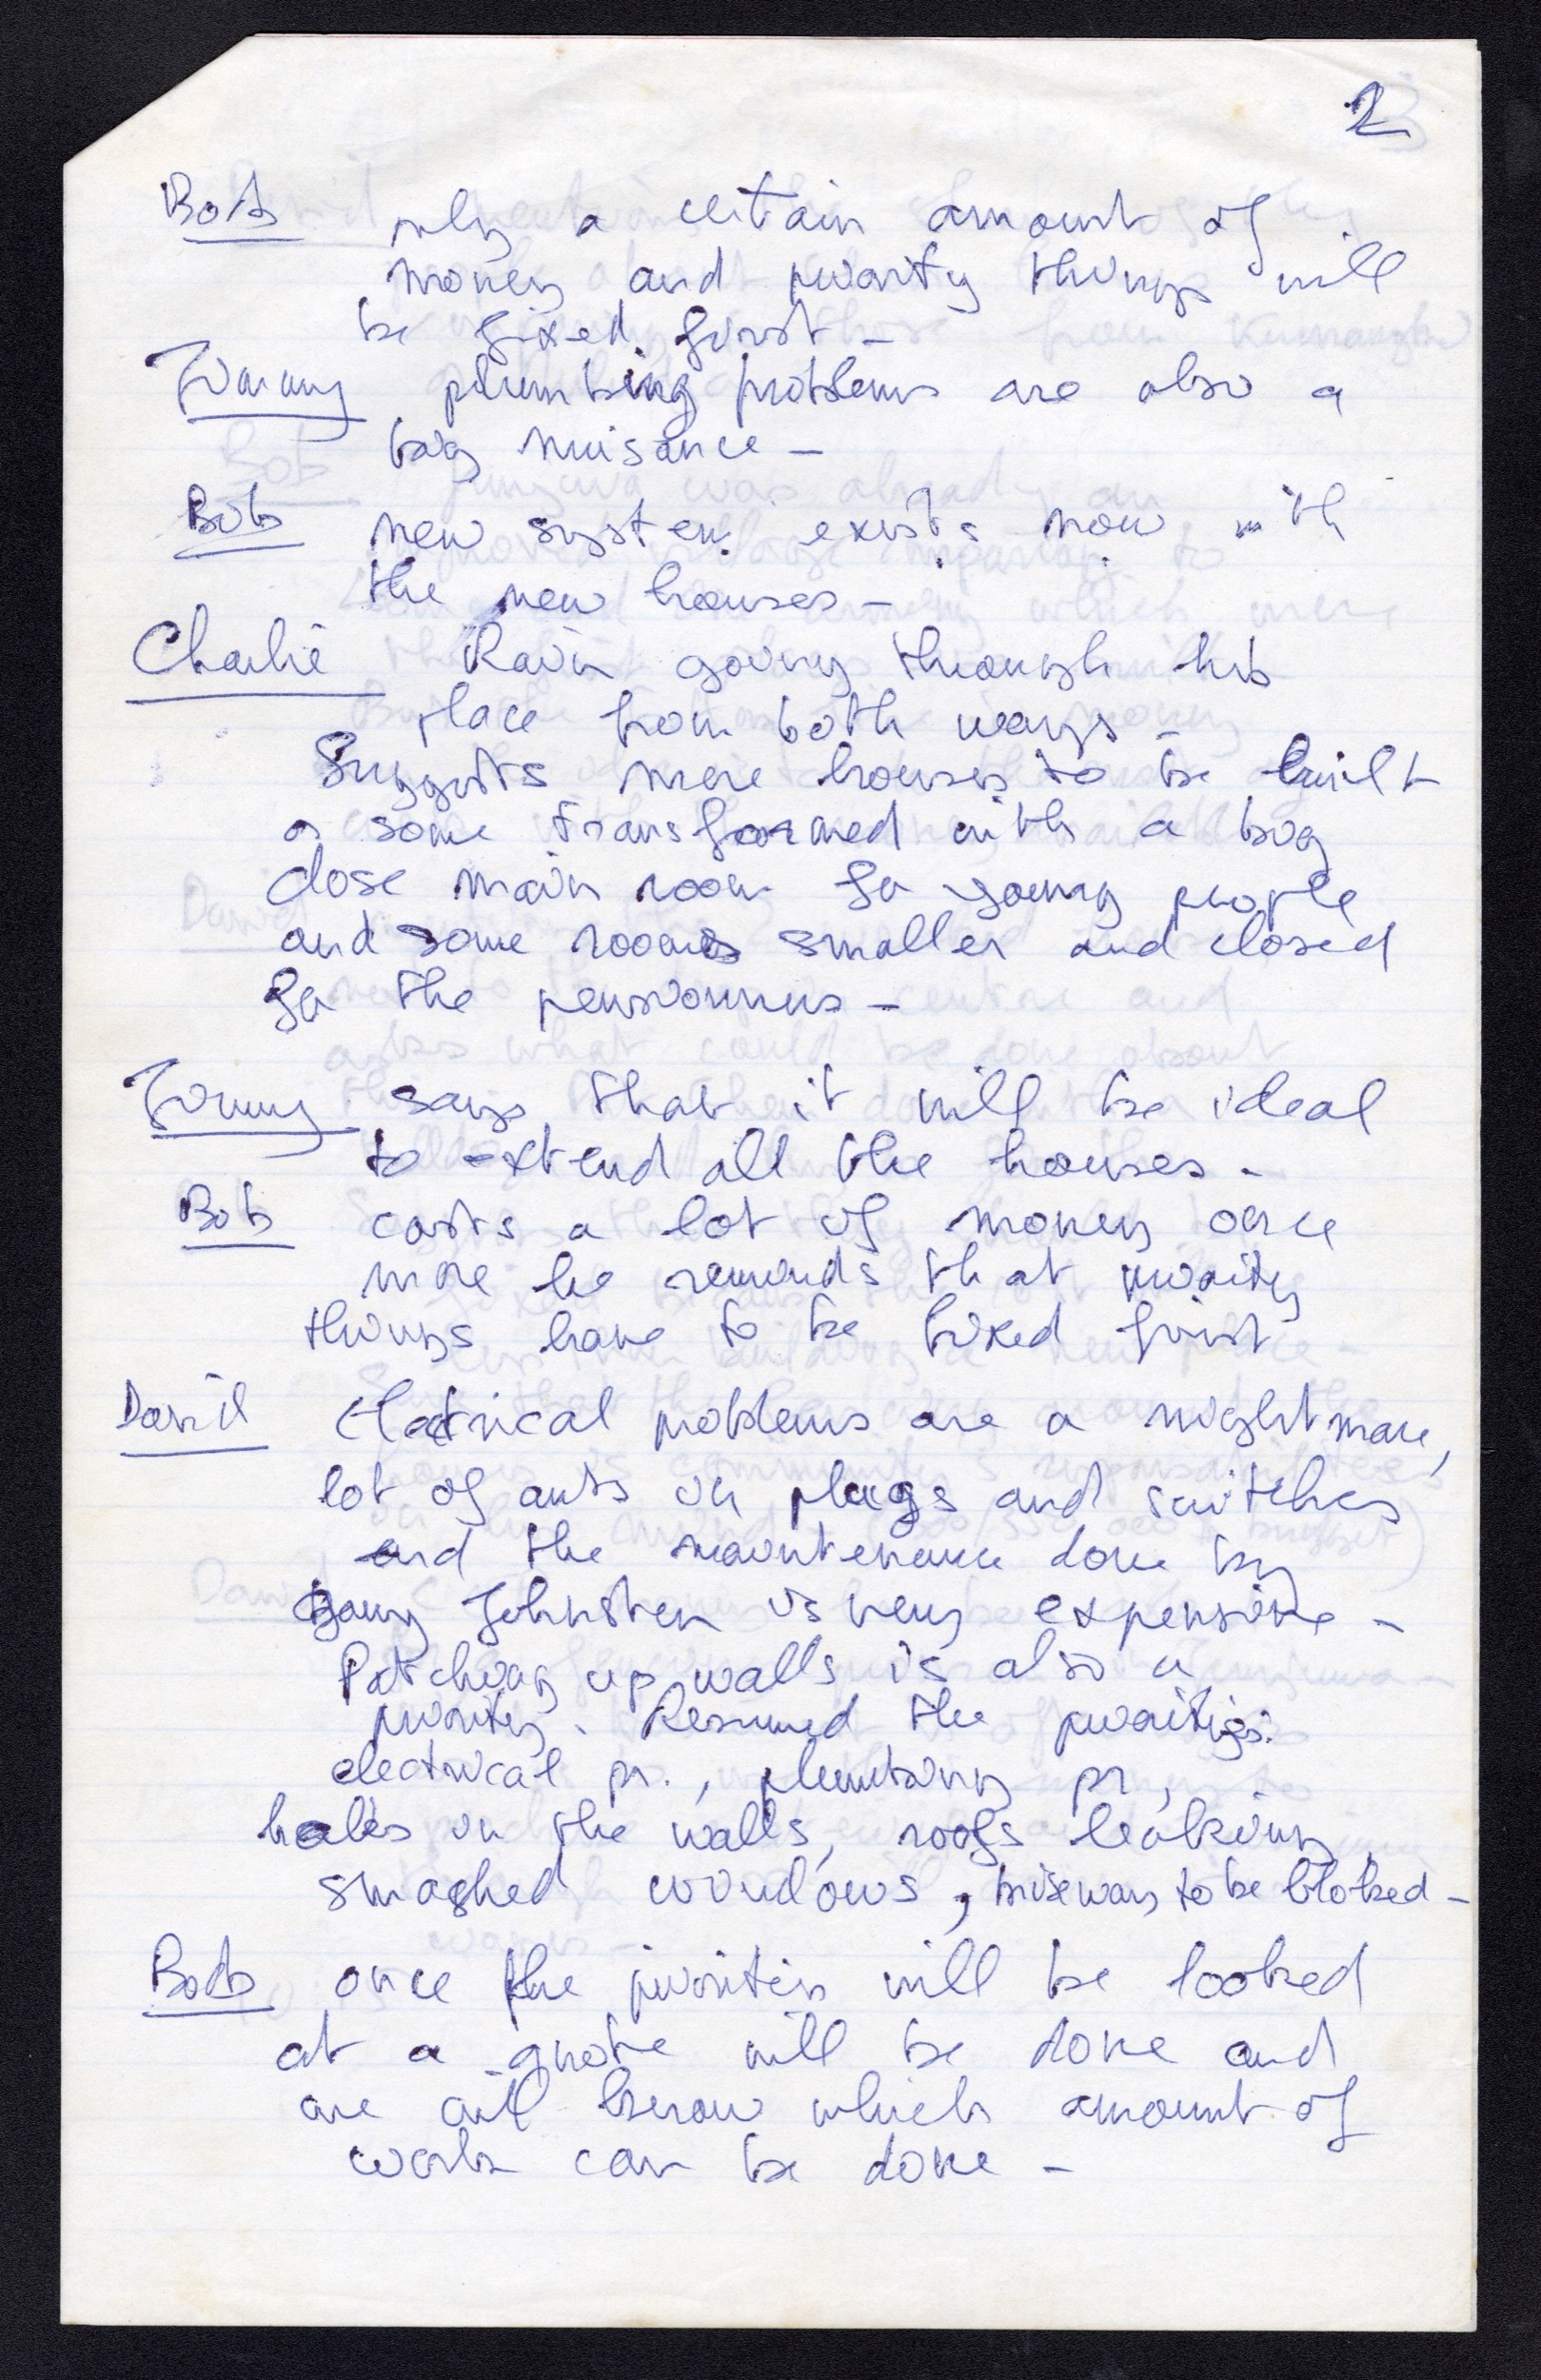 2
Bob only a certain amount of
money and priority things will
be fixed first -
Tommy plumbing problems are also a
big nuisance -
Bob new system exists now with
the new houses -
Charlie Rain going through his
place from both ways -
Suggests more houses to be built
or some transformed with a big
close main room for young people
and some rooms smaller and closed
for the pensionners -
Tommy says that it will be ideal
to extend all the houses -
Bob costs a lot of money once
more he reminds that priority
things have to be fixed first
David Electrical problems are a nightmare,
lot of ants in plugs and switches
and the maintenance done by
Johnston is very expensive -
Patching up walls is also a
priority. Resumed the priorities:
electrical pr., plumbing pr,
holes in the walls, roofs leaking,
smashed windows, to be blocked -
Bob once the priorities will be looked
at a quote will be done and
we will know which amount of
work can be done -